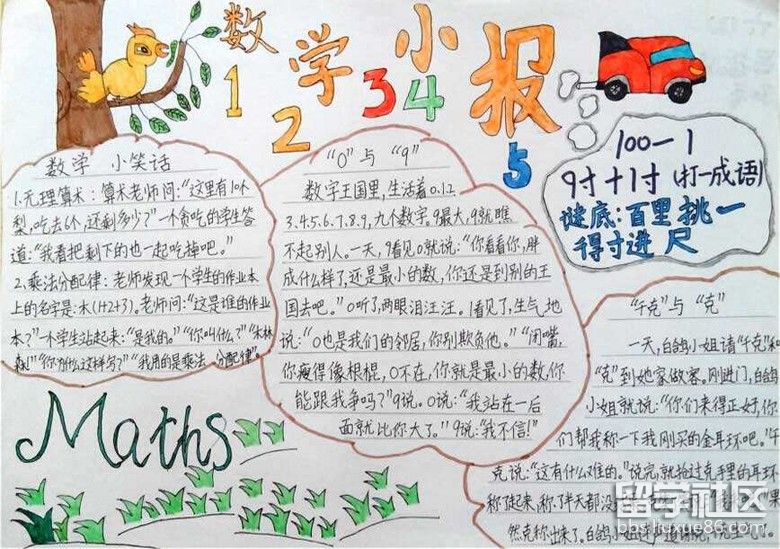 数学小报
1 2 3 4 5
数学 小笑话
1.无理算术：算术老师问："这里有10个
梨，吃去6个，还剩多少？"一个贪吃的学生答
道："我看把剩下的也一起吃掉吧。"
2、乘法分配律：老师发现一个学生的作业本
上的名字是：木(1+2+3)。老师问："这是谁的作业
本？"一个学生站起来："是我的。""你叫什么？""木林
森！""你为什么这样写？""我用的是乘法 分配律"。
Maths
"0"与"9"
数字王国里，生活着0.1.2.
3.4.5.6.7.8.9，九个数字。9最大，9就瞧
不起别人。一天，9看见0就说："你看看你，胖
成什么样了，还是最小的数，你还是到别的王
国去吧。"0听了，两眼泪汪汪。1看见了，生气地
说："0也是我们的邻居，你别欺负他。""闭嘴，
你瘦得像根棍，0不在，你就是最小的数，你
能跟我争吗？"9说。0说："我站在一后
面就比你大了。"9说："我不信！"
100－1
9寸＋1寸(打一成语)
谜底：百里挑一
得寸进尺
"千克"与"克"
一天，白鸽小姐请"千克"和
"克"到她家做客。刚进门，白鸽
小姐就说："你们来得正好，你
们帮我称一下我刚买的金耳环吧。"千
克说："这有什么难的。"说完，就抢过克手里的耳环
称了起来，称了半天都没
然克称出来了。白鸽小姐
留学社区
bbs.liuxue86.com